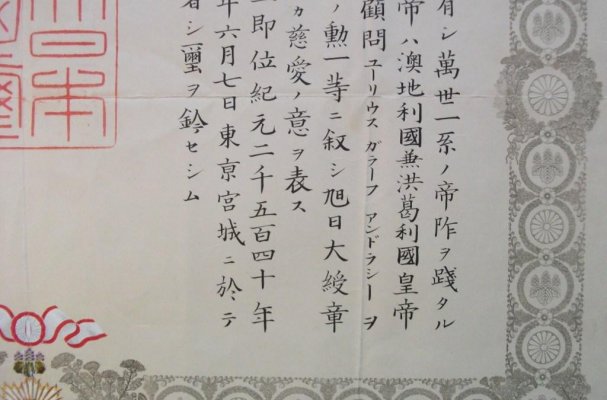 有シ萬世一系ノ帝阼ヲ踐タル
帝ハ澳地利國兼洪葛利國皇帝
顧問ユーリウス ガラーフ アンドラシーヲ
ノ勲一等ニ叙シ旭日大綬章
カ慈愛ノ意ヲ表ス
即位紀元二千五百四十年
年六月七日東京宮城ニ於テ
シ璽ヲ鈐セシム
日本
璽